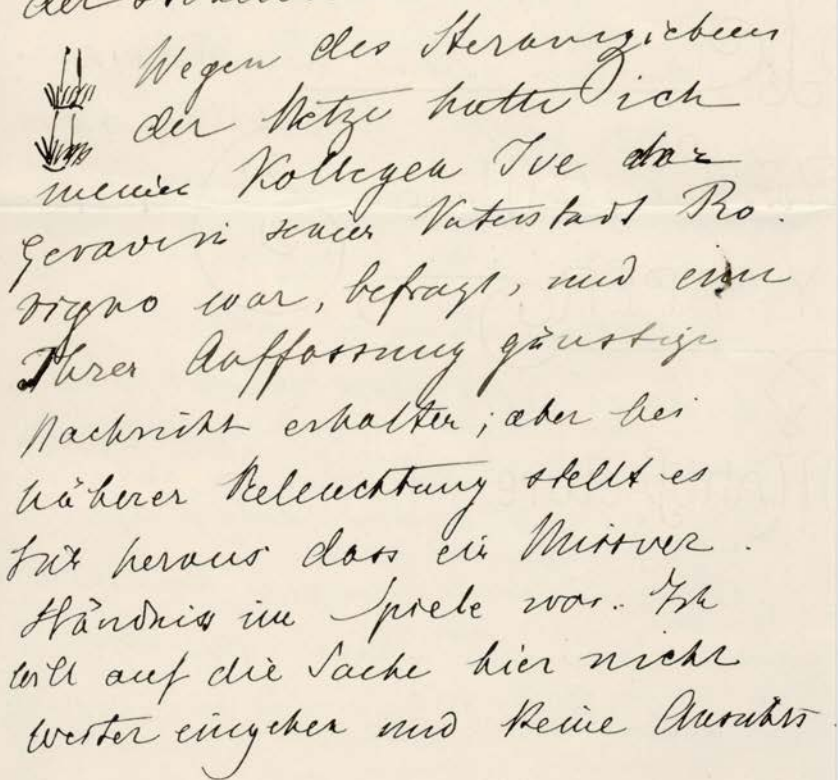 Wegen des Heranziehens
der Netze hatte ich
meinen Kollegen Ive der
gerade in seiner Vaterstadt Ro-
vigno war, befragt, und eine
Ihrer Auffassung günstige
Nachricht erhalten; aber bei
näherer Beleuchtung stellt es
sich heraus dass ein Missver-
ständnis im Spiele war. Ich
will auf die Sache hier nicht
weiter eingehen und keine